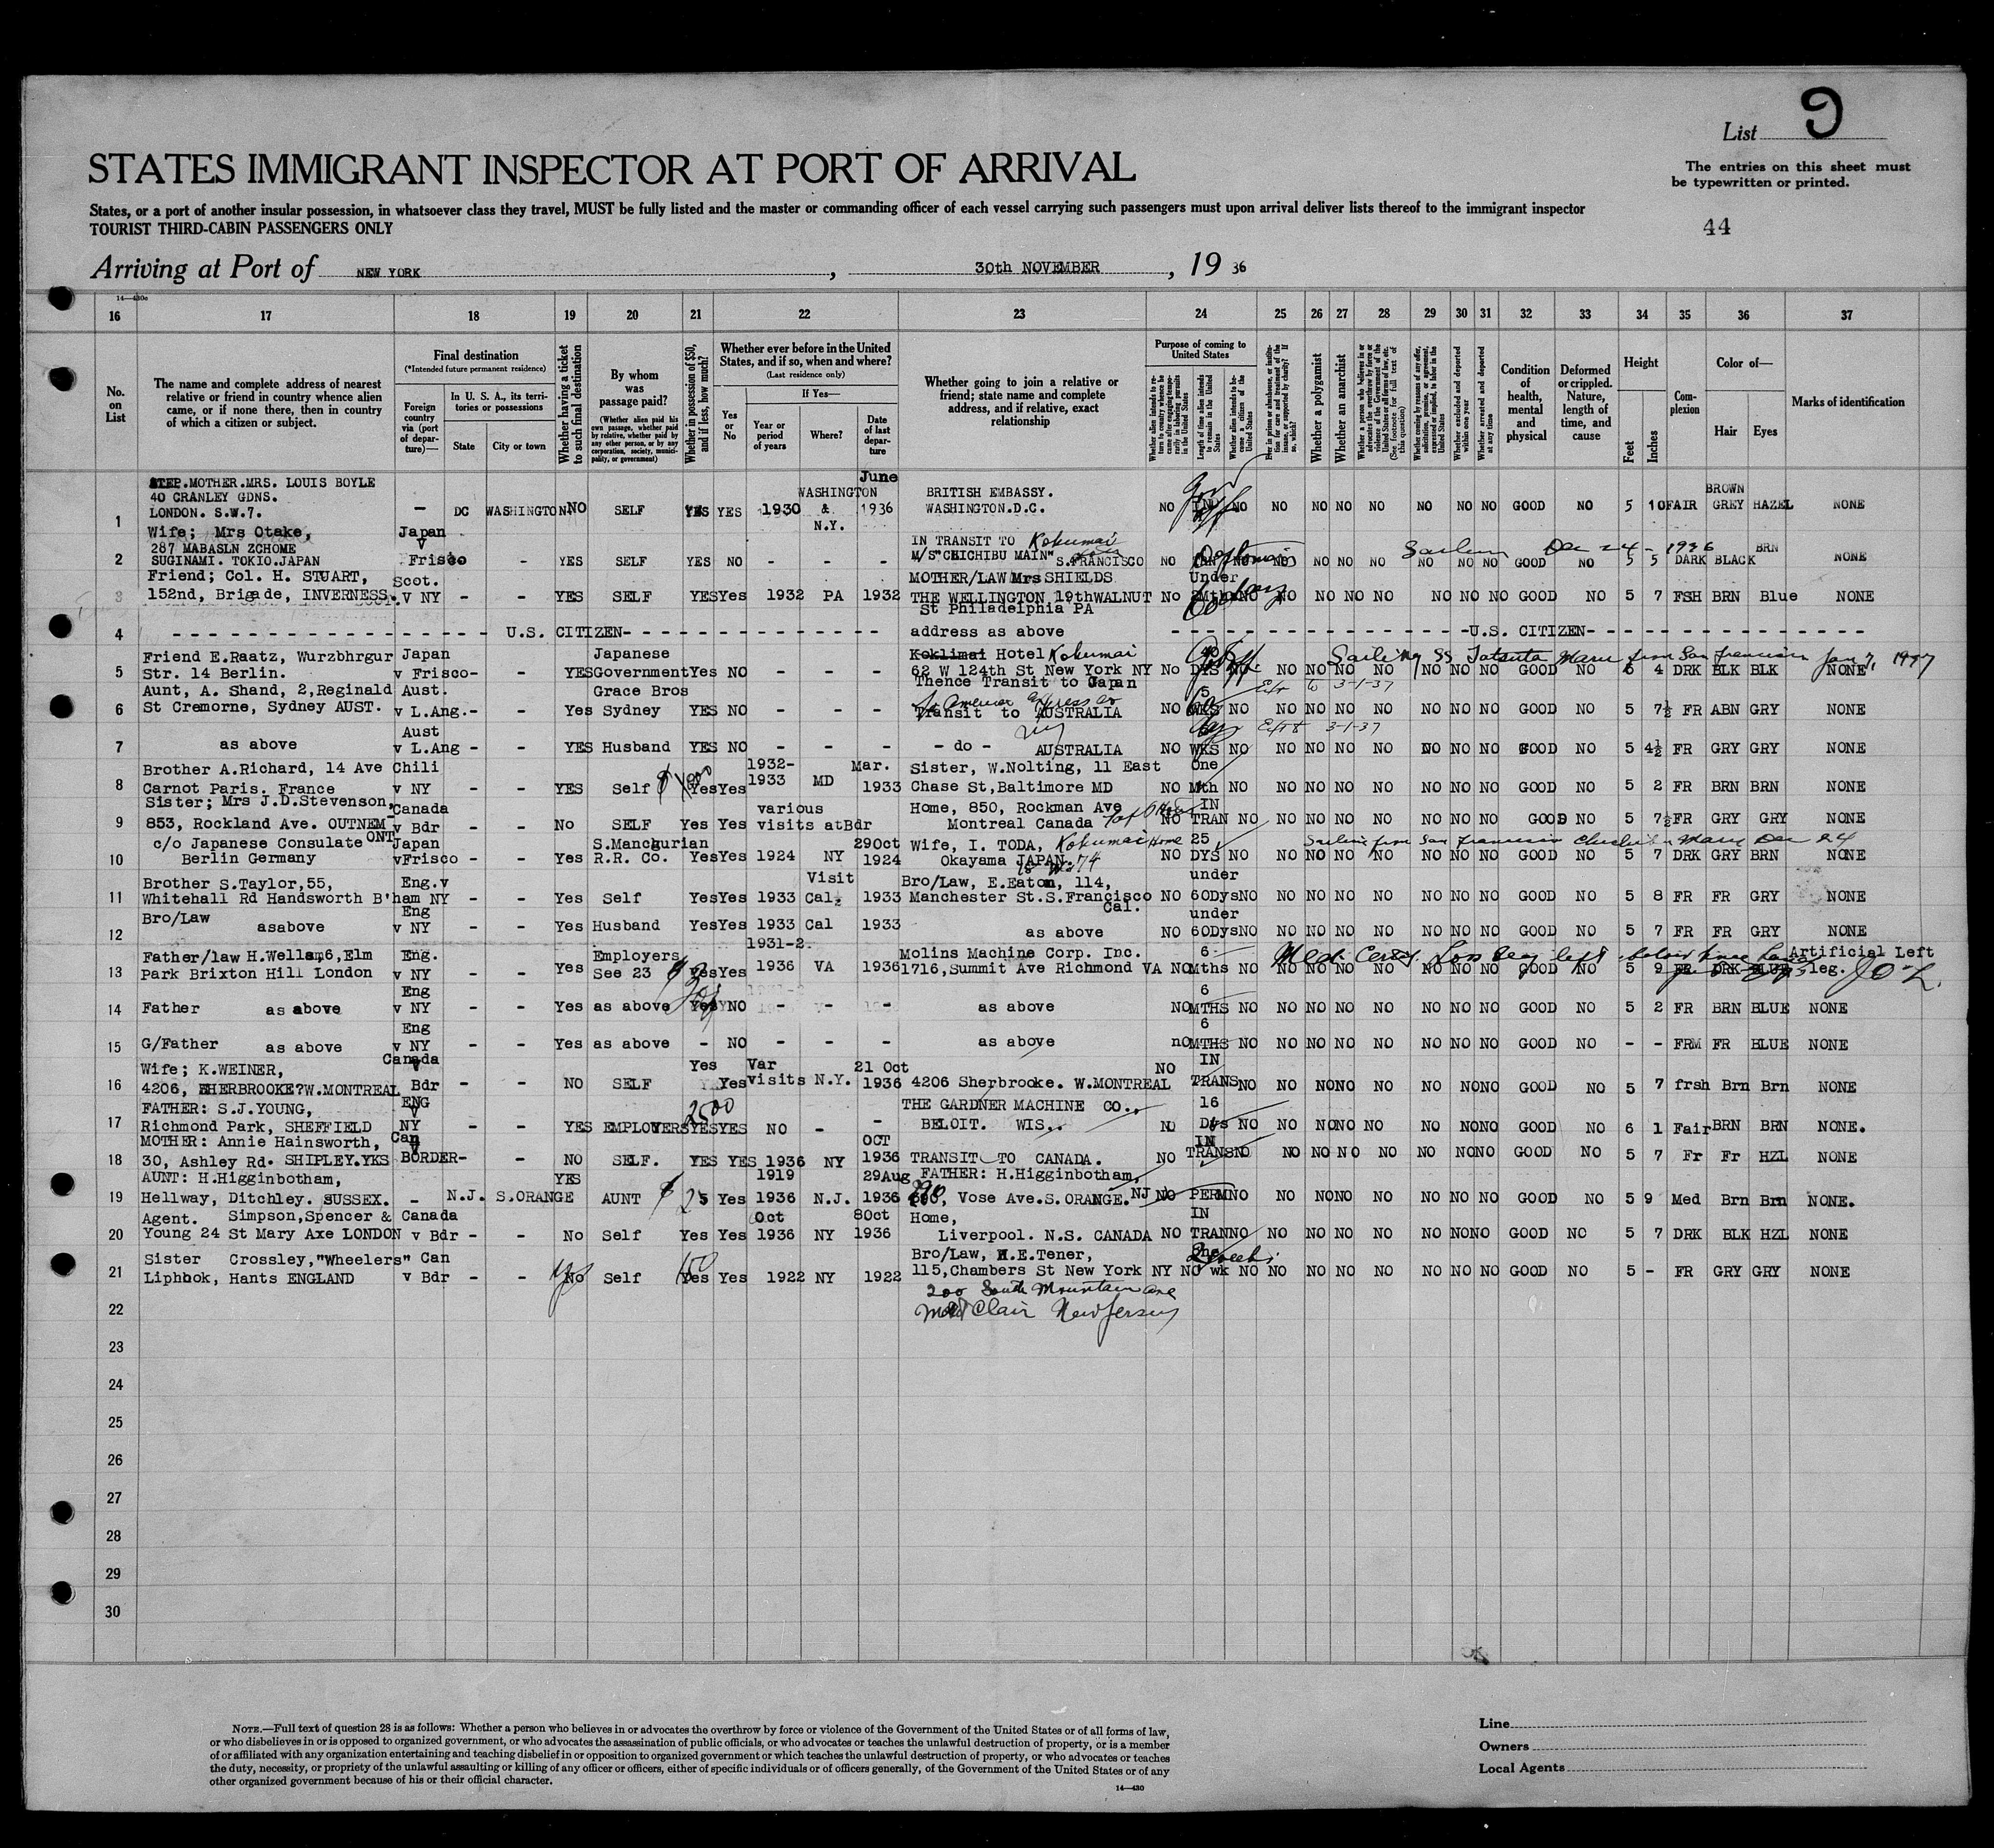 List 9
STATES IMMIGRANT INSPECTOR AT PORT OF ARRIVAL
The entries on this sheet must
be typewritten or printed.
States, or a port of another insular possession, in whatsoever class they travel, MUST be fully listed and the master or commanding officer of each vessel carrying such passengers must upon arrival deliver lists thereof to the immigrant inspector
TOURIST THIRD-CABIN PASSENGERS ONLY
44
Arriving at Port of NEW YORK, 30th NOVEMBER, 19 36
14—430c
16 17 18 19 20 21 22 23 24 25 26 27 28 29 30 31 32 33 34 35 36 37
No. on List
The name and complete address of nearest relative or friend in country whence alien came, or if none there, then in country of which a citizen or subject.
Final destination
(*Intended future permanent residence)
Foreign country via (port of departure)—
In U. S. A., its territories or possessions
State
City or town
Whether having a ticket to such final destination
By whom was passage paid?
(Whether alien paid his own passage, whether paid by relative, whether paid by any other person, or by any corporation, society, municipality, or government)
Whether in possession of $50, and if less, how much?
Whether ever before in the United States, and if so, when and where?
(Last residence only)
Yes or No
If Yes—
Year or period of years
Where?
Date of last departure
Whether going to join a relative or friend; state name and complete address, and if relative, exact relationship
Purpose of coming to United States
Whether alien intends to return to country whence he came after engaging temporarily in laboring pursuits in the United States
Length of time alien intends to remain in the United States
Whether alien intends to become a citizen of the United States
Ever in prison or almshouse, or institution for care and treatment of the insane, or supported by charity? If so, which?
Whether a polygamist
Whether an anarchist
(See footnote for full text of this question)
Whether coming by reason of any offer, solicitation, promise, or agreement, expressed or implied, to labor in the United States
Whether excluded and deported within one year
Whether arrested and deported at any time
Condition of health, mental and physical
Deformed or crippled. Nature, length of time, and cause
Height
Feet
Inches
Complexion
Color of—
Hair
Eyes
Marks of identification
STEP.MOTHER.MRS. LOUIS BOYLE June
40 CRANLEY GDNS. WASHINGTON BRITISH EMBASSY. BROWN
1 LONDON. S.W.7. — DC WASHINGTON. NO SELF YES YES 1930 & 1936 WASHINGTON.D.C. NO NO NO NO NO NO NO NO NO GOOD NO 5 10 FAIR GREY HAZEL NONE
N.Y.
Wife; Mrs Otake, Japan IN TRANSIT TO Kokumai
287 MABASLN ZCHOME V M/S"CHICHIBU MAIN" Dec 24 - 1936 BRN
2 SUGINAMI. TOKIO.JAPAN Frisco - YES SELF YES NO - - - S.FRANCISCO NO NO NO NO NO NO NO NO NO GOOD NO 5 5 DARK BLACK NONE
Friend; Col. H. STUART, Scot. MOTHER/LAW Mrs SHIELDS Under
3 152nd, Brigade, INVERNESS. V NY - - YES SELF YES Yes 1932 PA 1932 THE WELLINGTON 19thWALNUT No 2Mths NO NO NO NO NO NO NO NO GOOD NO 5 7 FSH BRN Blue NONE
St Philadelphia PA 60 days
4 U.S. CITIZEN address as above U.S. CITIZEN
Friend E.Raatz, Wurzbhrgur Japan Japanese Koklimai Hotel Kokumai Sailing SS Tatsuta Maru from San Francisco Jan 7, 1937
5 Str. 14 Berlin. v Frisco - YES Government Yes NO - - - 62 W 124th St New York NY NO DYS NO NO NO NO NO NO NO NO GOOD NO 5 4 DRK BLK BLK NONE
Thence Transit to Japan
Aunt, A. Shand, 2,Reginald Aust. Grace Bros 5 Ext to 3-1-37
6 St Cremorne, Sydney AUST. v L.Ang.- - Yes Sydney YES NO - - - Transit to AUSTRALIA NO WKS NO NO NO NO NO NO NO NO GOOD NO 5 7½ FR ABN GRY NONE
Aust Ext to 3-1-37
7 as above v L.Ang - - YES Husband YES NO - - - - do - AUSTRALIA NO WKS NO NO NO NO NO NO NO NO GOOD NO 5 4½ FR GRY GRY NONE
Brother A.Richard, 14 Ave Chili 1932- Mar. Sister, W.Nolting, 11 East one
8 Carnot Paris. France v NY - - YES Self Yes Yes 1933 MD 1933 Chase St,Baltimore MD NO Mth NO NO NO NO NO NO NO NO GOOD NO 5 2 FR BRN BRN NONE
Sister; Mrs J.D.Stevenson, Canada various Home, 850, Rockman Ave IN
9 853, Rockland Ave. OUTNEM- v Bdr - - No SELF Yes Yes visits at Bdr Montreal Canada NO TRAN NO NO NO NO NO NO NO NO GOOD NO 5 7½ FR GRY GRY NONE
ONT
c/o Japanese Consulate Japan S.Manchurian 29Oct Wife, I. TODA, Kokumai Home 25 Sailing from San Francisco Maru Dec 24
10 Berlin Germany vFrisco - - Yes R.R. Co. Yes Yes 1924 NY 1924 Okayama JAPAN. NO DYS NO NO NO NO NO NO NO NO GOOD NO 5 7 DRK GRY BRN NONE
Brother S.Taylor,55, Eng.v Visit Bro/Law, E.Eaton, 114, under
11 Whitehall Rd Handsworth B'ham NY - - Yes Self Yes Yes 1933 Cal. 1933 Manchester St.S.Francisco NO 60Dys NO NO NO NO NO NO NO NO GOOD NO 5 8 FR FR GRY NONE
Cal.
Bro/Law Eng under
12 asabove v NY - - Yes Husband Yes Yes 1933 Cal 1933 as above NO 60Dys NO NO NO NO NO NO NO NO GOOD NO 5 7 FR FR GRY NONE
1931-2.
Father/law H.Wellam,6,Elm Eng. Employers Molins Machine Corp. Inc. 6 Med. Cert. Loss leg left below knee Artificial Left
13 Park Brixton Hill London v NY - - Yes See 23 Yes Yes 1936 VA 1936 1716,Summit Ave Richmond VA NO Mths NO NO NO NO NO NO NO NO GOOD NO 5 9 FR DRK BLUE leg.
Eng 6
14 Father as above v NY - - Yes as above Yes NO - - - as above NO MTHS NO NO NO NO NO NO NO NO GOOD NO 5 2 FR BRN BLUE NONE
Eng 6
15 G/Father as above v NY - - Yes as above - NO - - - as above nO MTHS NO NO NO NO NO NO NO NO GOOD NO - - FRM FR BLUE NONE
Wife; K.WEINER, Canada v Yes Var 21 Oct NO IN
16 4206, SHERBROOKE?W.MONTREAL Bdr - - NO SELF Yes visits N.Y. 1936 4206 Sherbrooke. W.MONTREAL TRANS NO NO NO NO NO NO NO NO GOOD NO 5 7 frsh Brn Brn NONE
FATHER: S.J.YOUNG, ENG V 2500 THE GARDNER MACHINE CO., 16
17 Richmond Park, SHEFFIELD NY - - YES EMPLOYERS YES YES NO - - BELOIT. WIS.. NO Dys NO NO NO NO NO NO NO NO GOOD NO 6 1 Fair BRN BRN NONE.
MOTHER: Annie Hainsworth, Can V OCT IN
18 30, Ashley Rd. SHIPLEY.YKS BORDER- - NO SELF. YES YES 1936 NY 1936 TRANSIT TO CANADA. NO TRANS NO NO NO NO NO NO NO NO GOOD NO 5 7 Fr Fr HZL NONE
AUNT: H.Higginbotham, YES 1919 29Aug FATHER: H.Higginbotham,
19 Hellway, Ditchley. SUSSEX. - N.J. S.ORANGE AUNT $ 25 Yes 1936 N.J. 1936 Vose Ave.S.ORANGE. NJ NO PERM NO NO NO NO NO NO NO NO GOOD NO 5 9 Med Brn Brn NONE.
Agent. Simpson,Spencer & Canada Oct 8Oct Home, IN
20 Young 24 St Mary Axe LONDON v Bdr - - No Self Yes Yes 1936 NY 1936 Liverpool. N.S. CANADA NO TRAN NO NO NO NO NO NO NO NO GOOD NO 5 7 DRK BLK HZL NONE
Sister Crossley,"Wheelers" Can Bro/Law, H.E.Tener, One 2 weeks
21 Liphook, Hants ENGLAND v Bdr - - No yes Self 150 Yes Yes 1922 NY 1922 115,Chambers St New York NY NO wk NO NO NO NO NO NO NO NO GOOD NO 5 - FR GRY GRY NONE
200 South Mountain ave
22 Montclair New Jersey
23
24
25
26
27
28
29
30
NOTE.—Full text of question 28 is as follows: Whether a person who believes in or advocates the overthrow by force or violence of the Government of the United States or of all forms of law,
or who disbelieves in or is opposed to organized government, or who advocates the assassination of public officials, or who advocates or teaches the unlawful destruction of property, or is a member
of or affiliated with any organization entertaining and teaching disbelief in or opposition to organized government or which teaches the unlawful destruction of property, or who advocates or teaches
the duty, necessity, or propriety of the unlawful assaulting or killing of any officer or officers, either of specific individuals or of officers generally, of the Government of the United States or of any
other organized government because of his or their official character.
14—430
Line
Owners
Local Agents